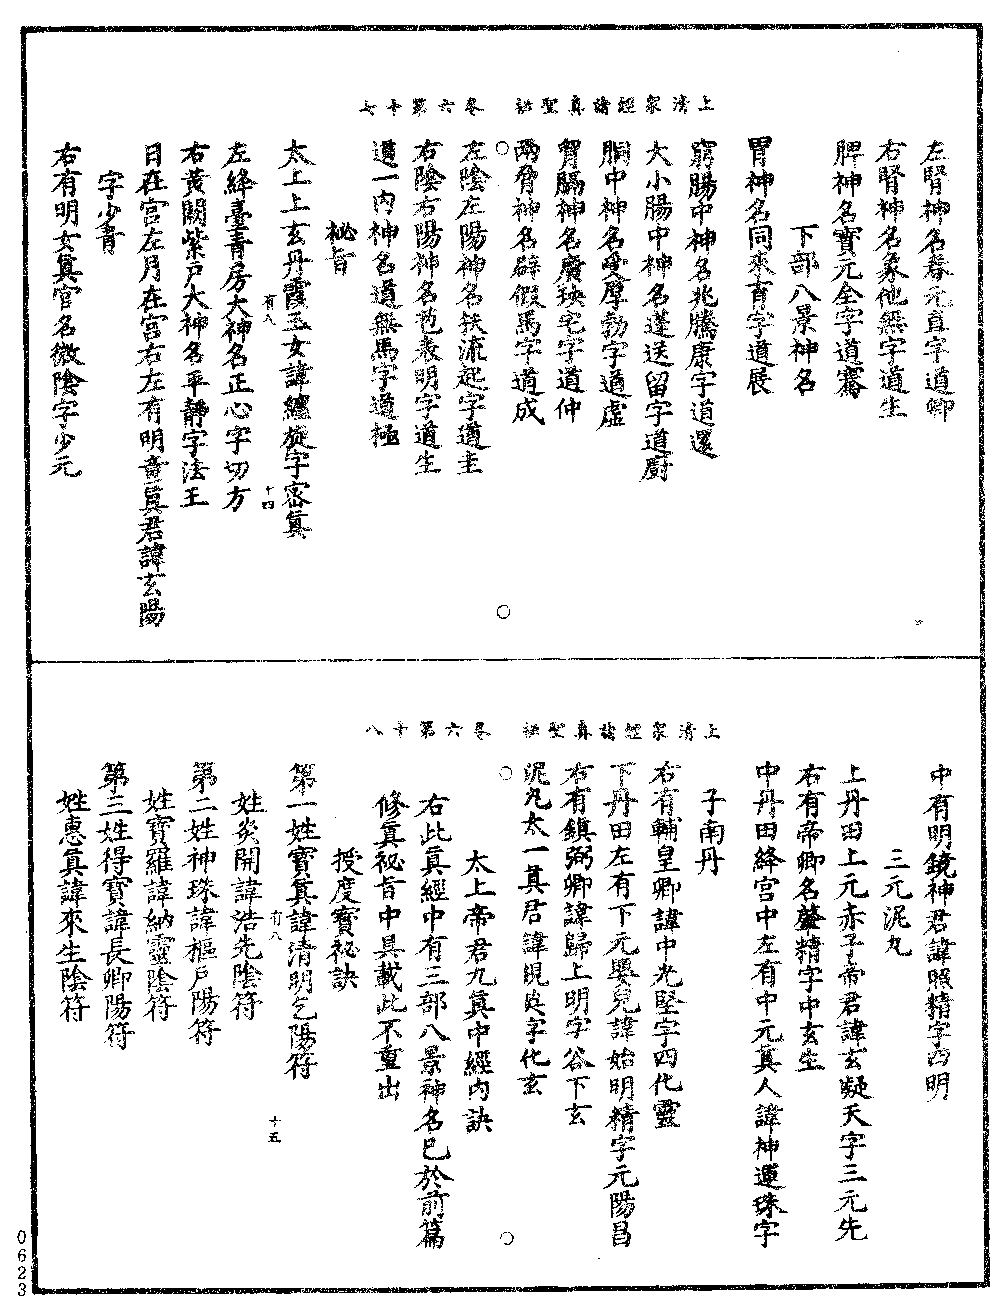 上清衆經諸真聖秘　卷六第十七
左腎神名春元直字道卿
右腎神名象他無字道生
脾神名寶元全字道騫
下部八景神名
胃神名同來育字道展
窮腸中神名兆騰康字道還
大小腸中神名蓬送留字道廚
胴中神名受厚勃字道虛
胃膈神名廣瑛宅字道仲
兩脅神名辟假馬字道成
左陰左陽神名扶流起字道圭
右陰右陽神名苞表明字道生
道一內神名道無馬字道極
祕旨
太上上玄丹霞玉女諱纏旋字密真
有八　十四
左絳臺青房大神名正心字切方
右黃闕紫戶大神名平靜字法王
日在宮左月在宮右左有明童真君諱玄陽
字少青
右有明女真官名微陰字少元
上清衆經諸真聖秘　卷六第十八
中有明鏡神君諱照精字四明
三元泥丸
上丹田上元赤子帝君諱玄凝天字三元先
右有帝卿名肇精字中玄生
中丹田絳宮中左有中元真人諱神運珠字
子南丹
右有輔皇卿諱中光堅字四化靈
下丹田左有下元嬰兒諱始明精字元陽昌
右有鎮弼卿諱歸上明字谷下玄
泥丸太一真君諱規英字化玄
太上帝君九真中經內訣
右此真經中有三部八景神名已於前篇
修真祕旨中具載此不重出
授度寶祕訣
第一姓寶真諱清明乞陽符
有八　十五
姓炎開諱浩先陰符
第二姓神珠諱樞戶陽符
姓寶羅諱納靈陰符
第三姓得寶諱長卿陽符
姓惠真諱來生陰符
0623